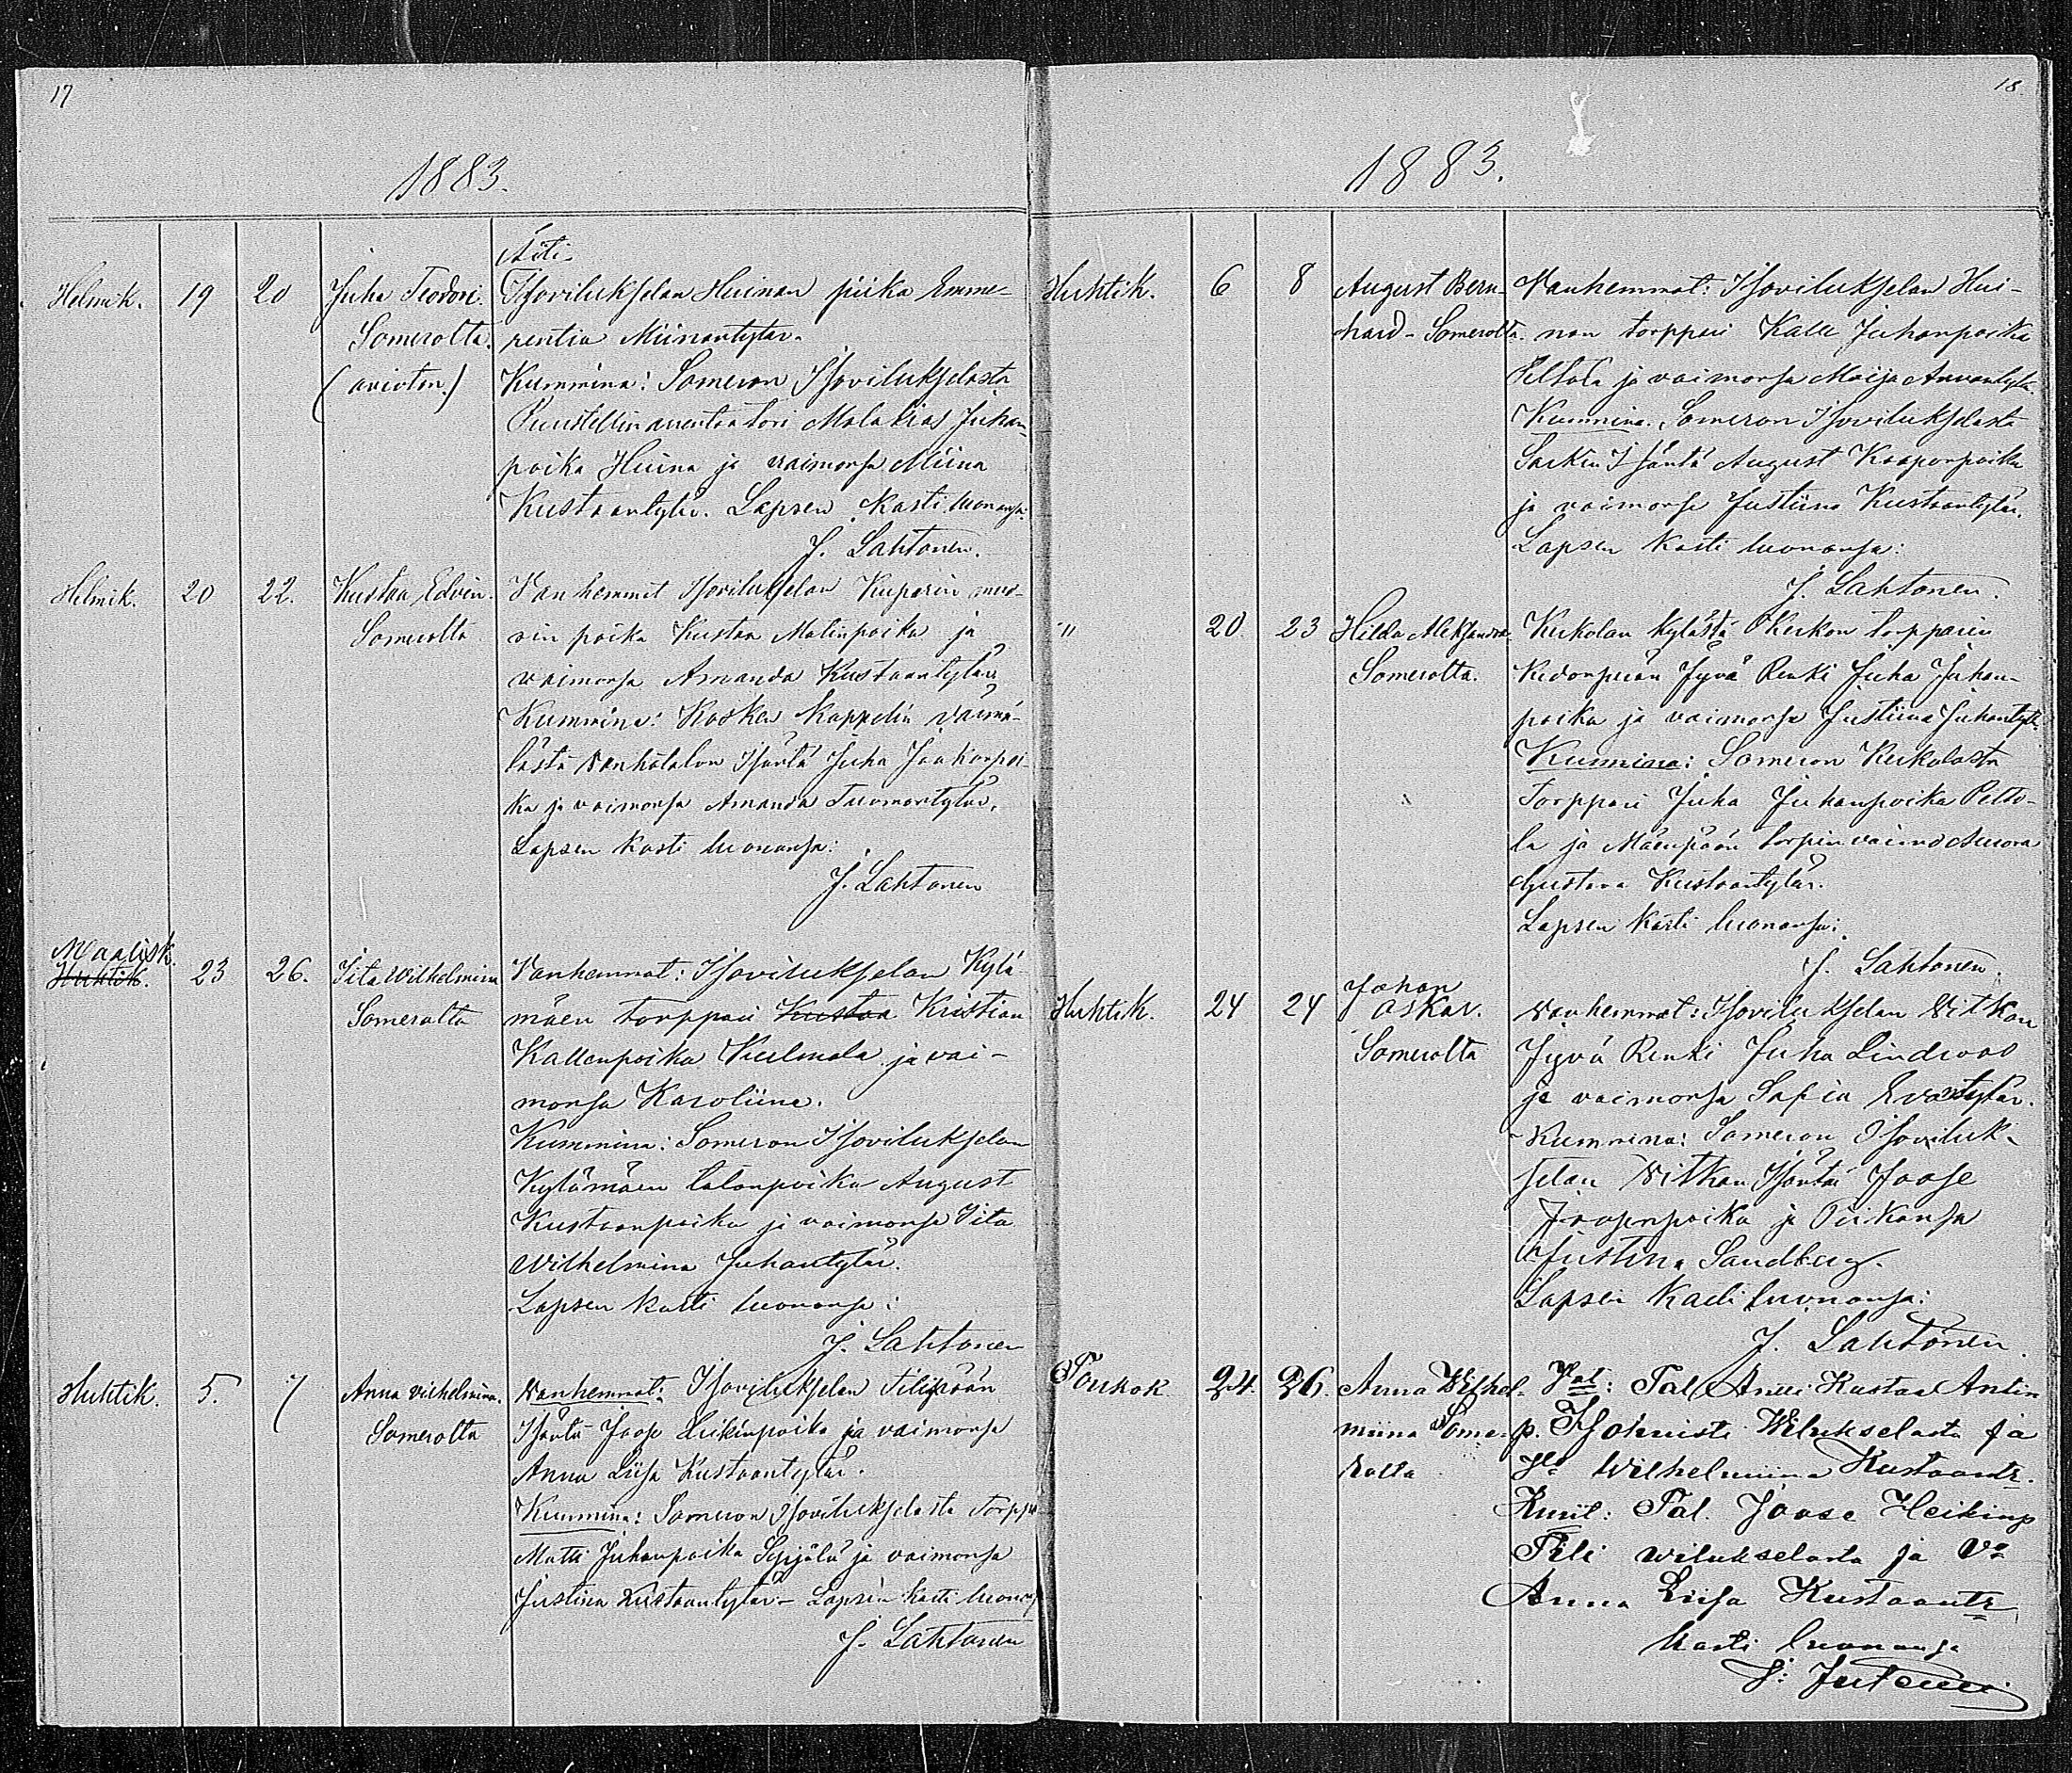 17
1883.
Äiti.
Helmik. 19 20 Juha Teodori. Isovilukselan Huinan piika Emme-
Somerolta. rentia Miinantytär.
(avioton.) Kummina: Someron Isovilukselasta
Puustellin arentaatori Malakias Juhan-
poika Huina ja vaimonsa Miina
Kustaantytär. Lapsen kasti luonansa
J. Lahtonen.
Helmik. 20 22. Kustaa Edvin. Vanhemmat Isovilukselan Kuparin muo-
Somerolta rin poika Kustaa Matinpoika ja
vaimonsa Amanda Kustaantytär
Kummina: Kosken kappelin
lästä Vanhatalon Isäntä Juha Jaakonpoi-
ka ja vaimonsa Amanda Tuomantytär,
Lapsen kasti luonansa:
J. Lahtonen
Maalisk.
Huhtik. 23 26. Iita Wilhelmina Vanhemmat: Isovilukselan Kylä-
Somerolta mäen torppari Kustaa Kristian
Kallenpoika Kulmala ja vai-
monsa Karoliina.
Kummina: Someron Isovilukselan
Kylämäen talonpoika August
Kustaanpoika ja vaimonsa Iita
Wilhelmina Juhantytär.
Lapsen kasti luonansa:
J. Lahtonen
Huhtik. 5. 7 Anna Vilhelmina. Vanhemmat: Isovilukselan Tilipään
Somerolta Isäntä Joose Heikinpoika ja vaimonsa
Anna Liisa Kustaantytär.
Kummina: Someron Isovilukselasta torppa
Matti Juhanpoika Syrjälä ja vaimonsa
Justina Kustaantytär - Lapsen kasti luonans
J. Lahtonen
18.
1883.
Huhtik. 6 8 August Bern- Vanhemmat: Isovilukselan Hui-
hard - Somerolta. nan torppari Kalle Juhanpoika
Peltola ja vaimonsa Maija Annantytär.
Kummina. Someron Isovilukselasta
Sarkin Isäntä August Kaaponpoika
ja vaimonsa Justiina Kustaantytär.
Lapsen kasti luonansa:
J. Lahtonen.
" 20 23 Hilda Aleksandra Kerkolan kylästä Kerkon torpparin
Somerolta. Kedonperän Jyvä Renki Juha Juhan-
poika ja vaimonsa Justiina Juhantytär.
Kummina: Someron Kerkolasta
Torppari Juha Juhanpoika Pelto-
la ja Mäenpään torpin vaimo Auora
Gustava Kustaantytär.
Lapsen kasti luonansa:
J. Lahtonen.
Johan
Huhtik. 24 24 Oskar. Vanhemmat: Isovilukselan Vitkan
Somerolta Jyvä Renki Juha Lindroos
ja vaimonsa Sofia Evantytär.
Kummina: Someron Isoviluk-
selan Vitkan Isäntä Joose
Joosenpoika ja Piikansa
Justina Sandberg.
Lapsen kasti luonansa:
J. Lahtonen.
Toukok 24. 26. Anna Wilhel- Vat: Tal. Kustaa Antin
miina Some- p. Wilukselasta ja
rolta Wilhelmiina Kustaantr.
Kmit: Tal. Joose Heikinp
Tili Wilukselasta ja Vo
Anna Liisa Kustaantr
kasti luonansa